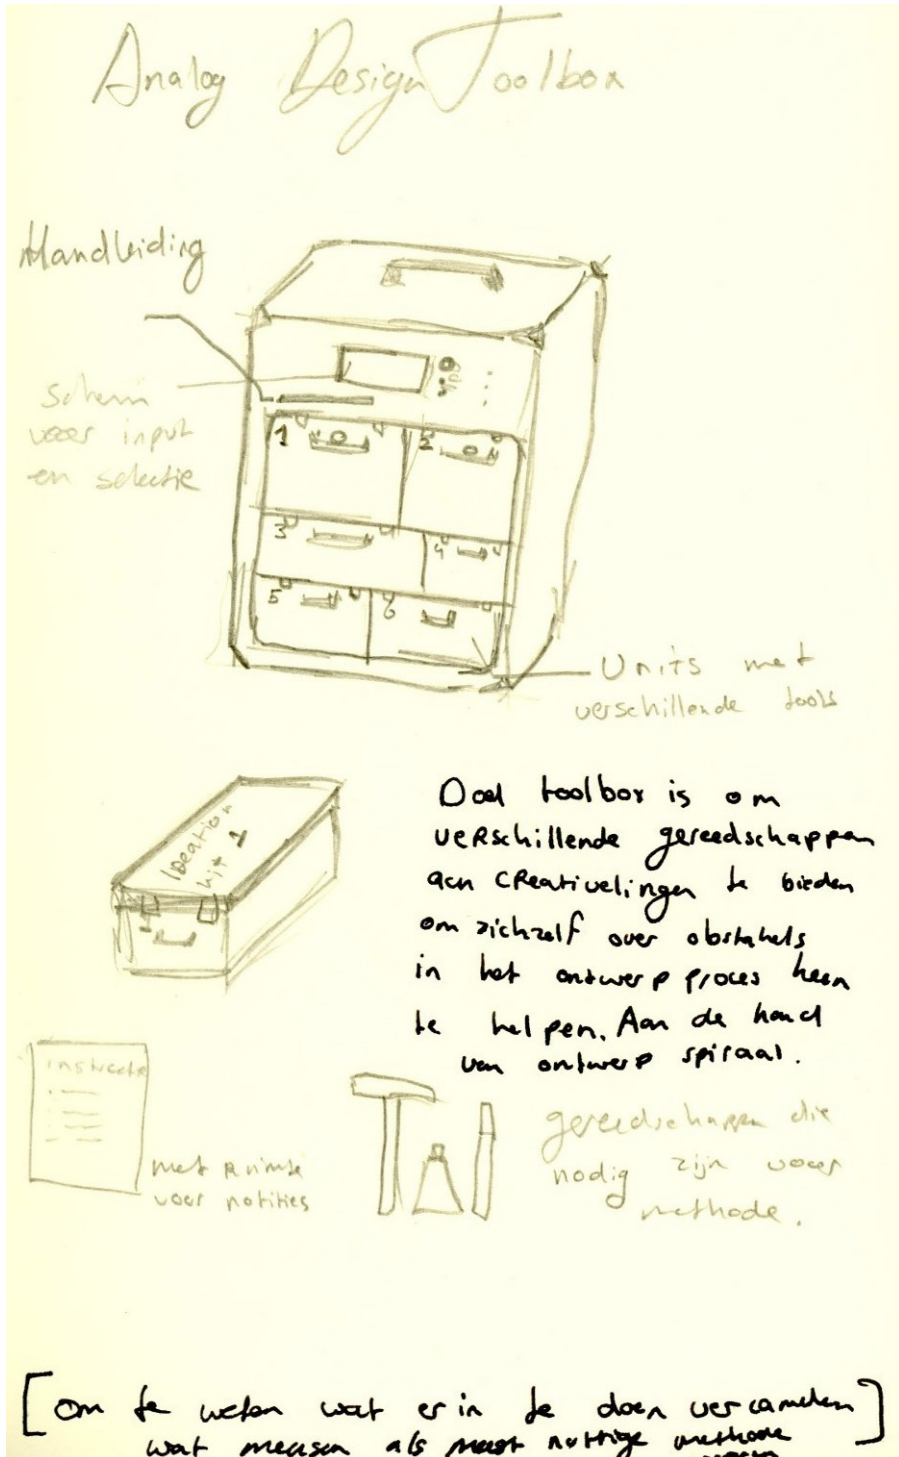 Analog Design Toolbox
Handleiding
Scherm
voor input
en selectie
1
2
3
4
5
6
Units met
verschillende tools
Ideation
kit 1
1
Doel toolbox is om
verschillende gereedschappen
aan creativelingen te bieden
om zichzelf over obstakels
in het ontwerp proces heen
te helpen. Aan de hand
van ontwerp spiraal.
instructie
met ruimte
voor notities
gereedschappen die
nodig zijn voor
methode.
[om te weten wat er in te doen verzamelen]
wat mensen als meest nuttige methode